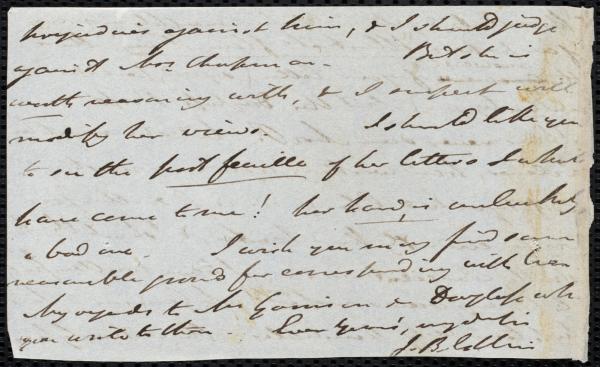 prejudices against him, & I should judge
against Mrs. Chapman. But she is
worth reasoning with, & I suspect will
modify her views. I should like you
to see the port feuille of her letters which
have come to me! her hand, is
a bad one. I wish you may find some
reasonable ground for corresponding with
My regards to Mr Garrison & Douglass when
you write to them. Ever Yours, my
J. B.